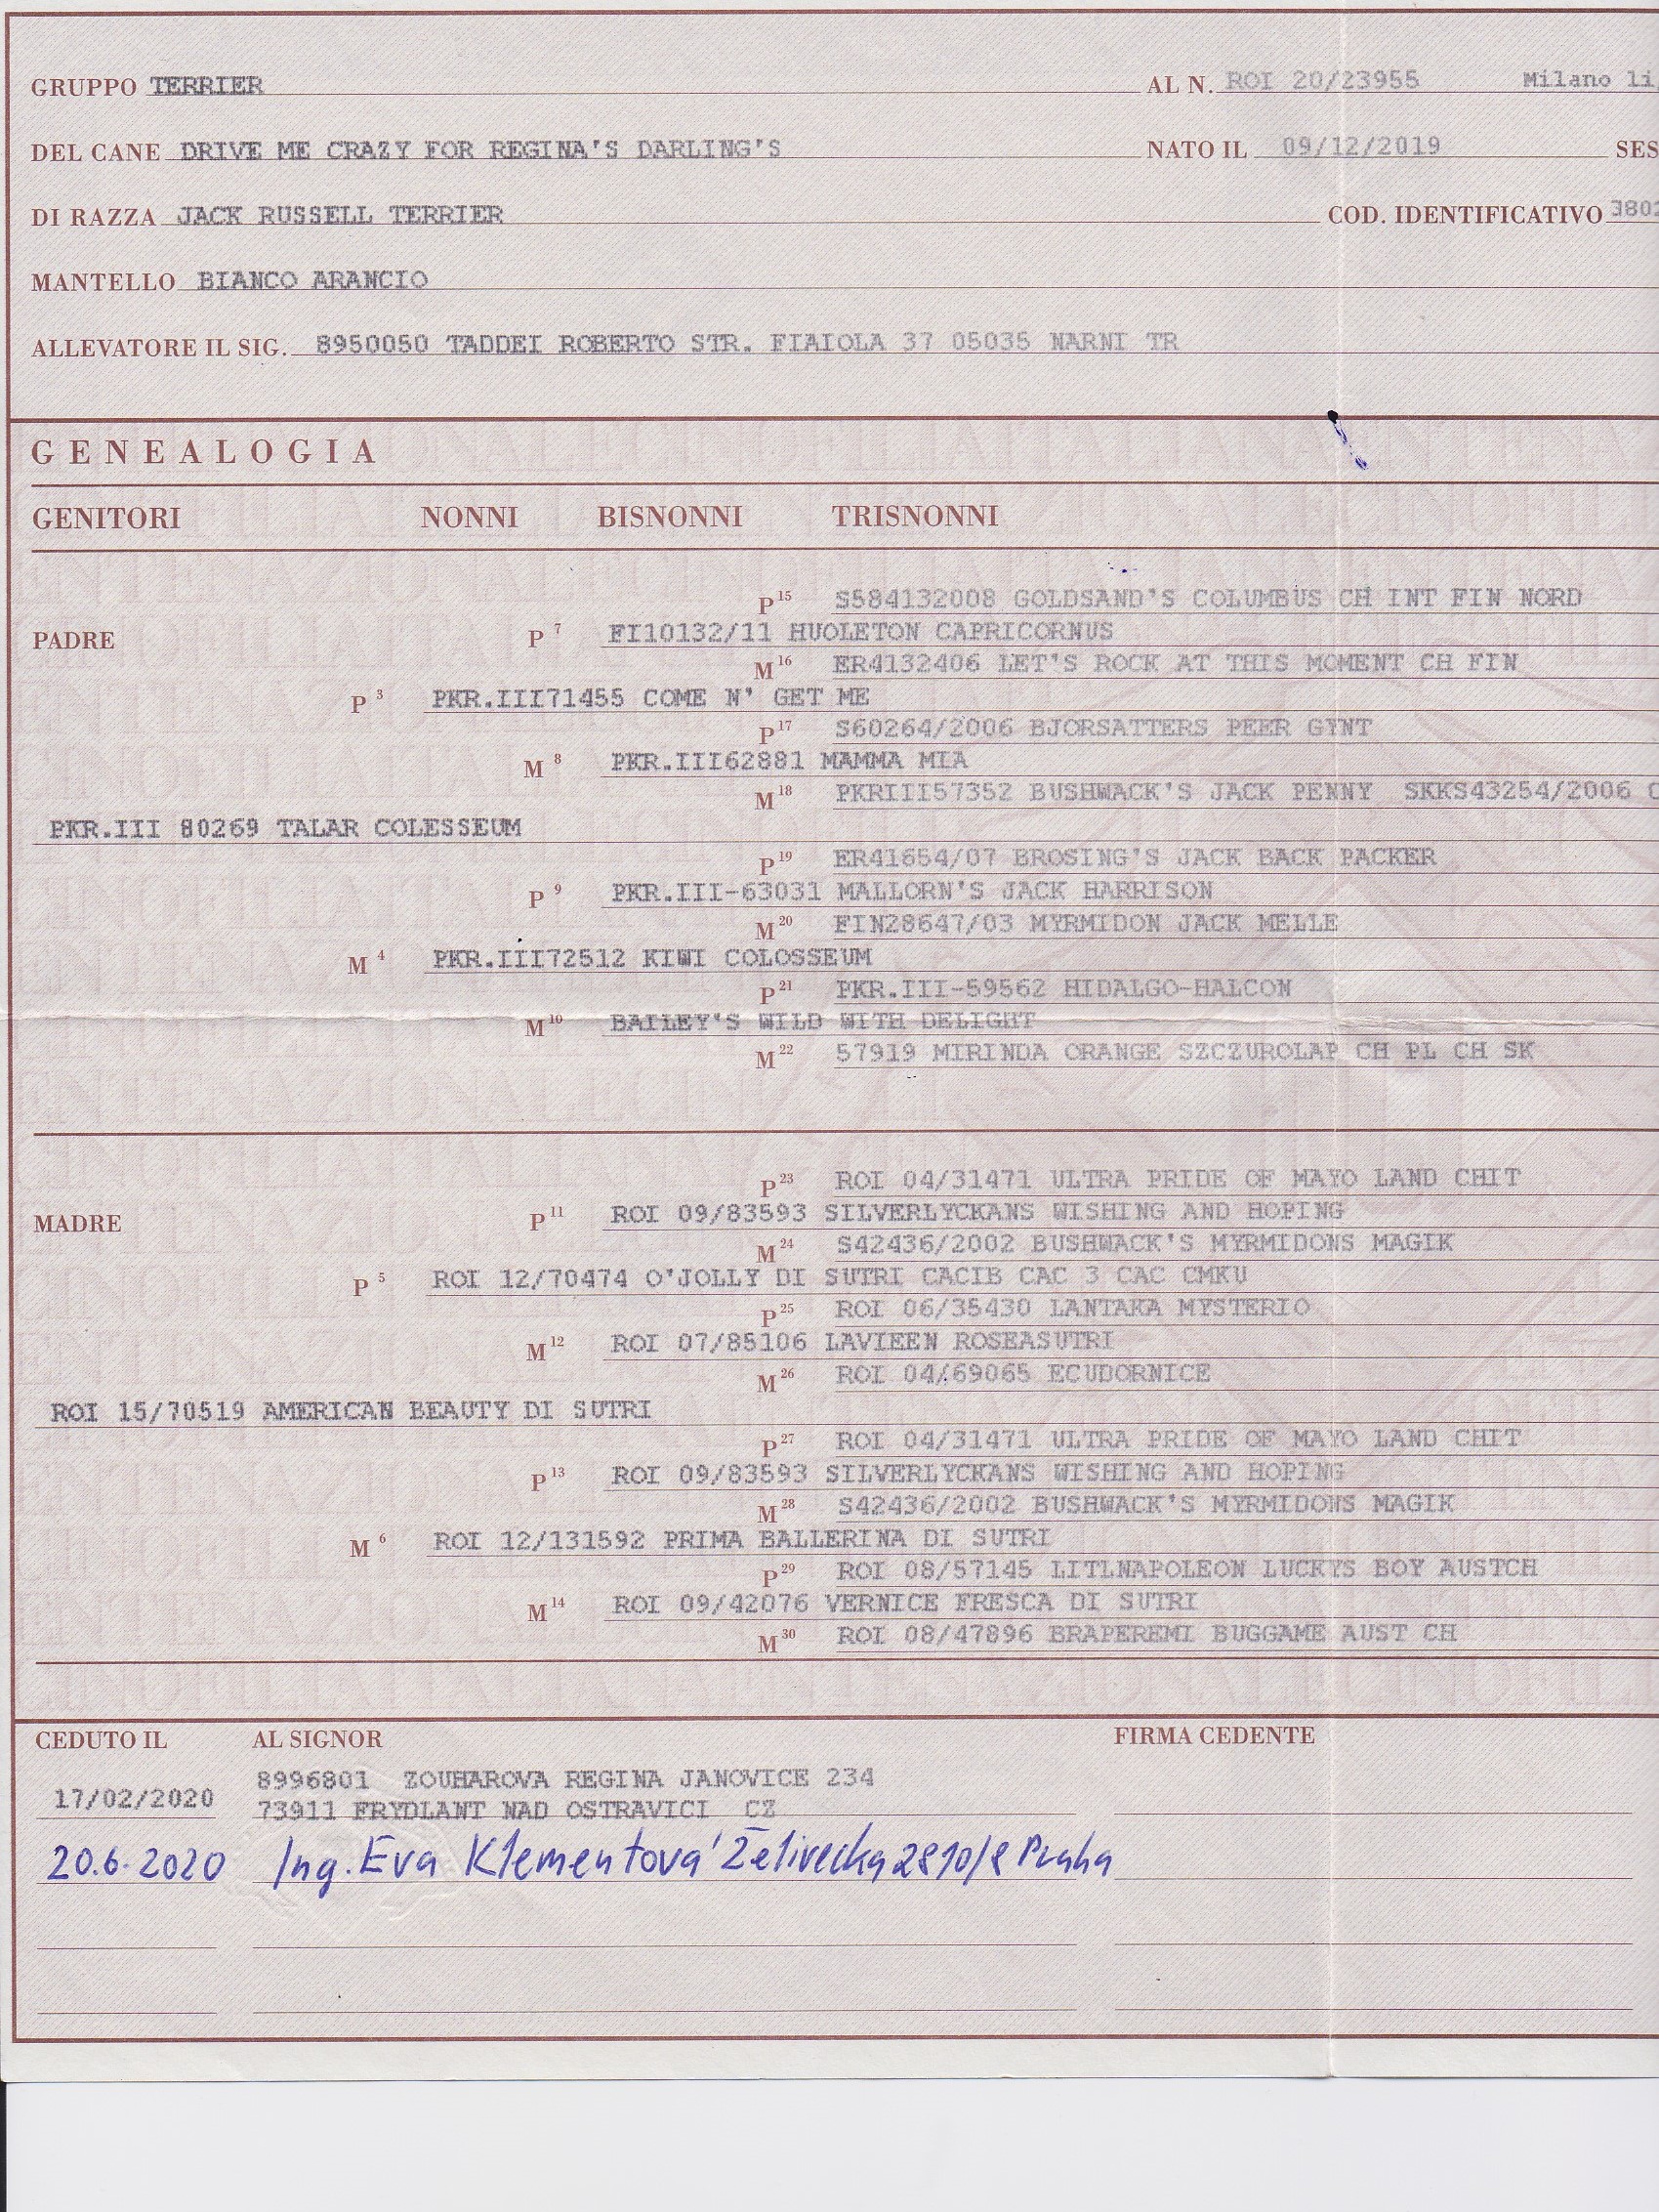 GRUPPO TERRIER AL N. ROI 20/23955 Milano li
DEL CANE DRIVE ME CRAZY FOR REGINA'S DARLING'S NATO IL 09/12/2019 SES
DI RAZZA JACK RUSSELL TERRIER COD. IDENTIFICATIVO 3802
MANTELLO BIANCO ARANCIO
ALLEVATORE IL SIG. 8950050 TADDEI ROBERTO STR. FIAIOLA 37 05035 NARNI TR
GENEALOGIA
GENITORI NONNI BISNONNI TRISNONNI
P 15 S584132008 GOLDSAND'S COLUMBUS CH INT FIN NORD
PADRE P 7 FI10132/11 HUOLETON CAPRICORNUS
M 16 ER4132406 LET'S ROCK AT THIS MOMENT CH FIN
P 3 PKR.III71455 COME N' GET ME
P 17 S60264/2006 BJORSATTERS PEER GYNT
M 8 PKR.III62881 MAMMA MIA
M 18 PKRIII57352 BUSHWACK'S JACK PENNY SKKS43254/2006 C
PKR.III 80269 TALAR COLESSEUM
P 19 ER41654/07 BROSING'S JACK BACK PACKER
P 9 PKR.III-63031 MALLORN'S JACK HARRISON
M 20 FIN28647/03 MYRMIDON JACK MELLE
M 4 PKR.III72512 KIWI COLOSSEUM
P 21 PKR.III-59562 HIDALGO-HALCON
M 10 BAILEY'S WILD WITH DELIGHT
M 22 57919 MIRINDA ORANGE SZCZUROLAP CH PL CH SK
P 23 ROI 04/31471 ULTRA PRIDE OF MAYO LAND CHIT
MADRE P 11 ROI 09/83593 SILVERLYCKANS WISHING AND HOPING
M 24 S42436/2002 BUSHWACK'S MYRMIDONS MAGIK
P 5 ROI 12/70474 O'JOLLY DI SUTRI CACIB CAC 3 CAC CMKU
P 25 ROI 06/35430 LANTAKA MYSTERIO
M 12 ROI 07/85106 LAVIEEN ROSEASUTRI
M 26 ROI 04/69065 ECUDORNICE
ROI 15/70519 AMERICAN BEAUTY DI SUTRI
P 27 ROI 04/31471 ULTRA PRIDE OF MAYO LAND CHIT
P 13 ROI 09/83593 SILVERLYCKANS WISHING AND HOPING
M 28 S42436/2002 BUSHWACK'S MYRMIDONS MAGIK
M 6 ROI 12/131592 PRIMA BALLERINA DI SUTRI
P 29 ROI 08/57145 LITLNAPOLEON LUCKYS BOY AUSTCH
M 14 ROI 09/42076 VERNICE FRESCA DI SUTRI
M 30 ROI 08/47896 BRAPEREMI BUGGAME AUST CH
CEDUTO IL AL SIGNOR FIRMA CEDENTE
8996801 ZOUHAROVA REGINA JANOVICE 234
17/02/2020 73911 FRYDLANT NAD OSTRAVICI CZ
20.6.2020 Ing. Eva Klementová Želivecká 2810/8 Praha